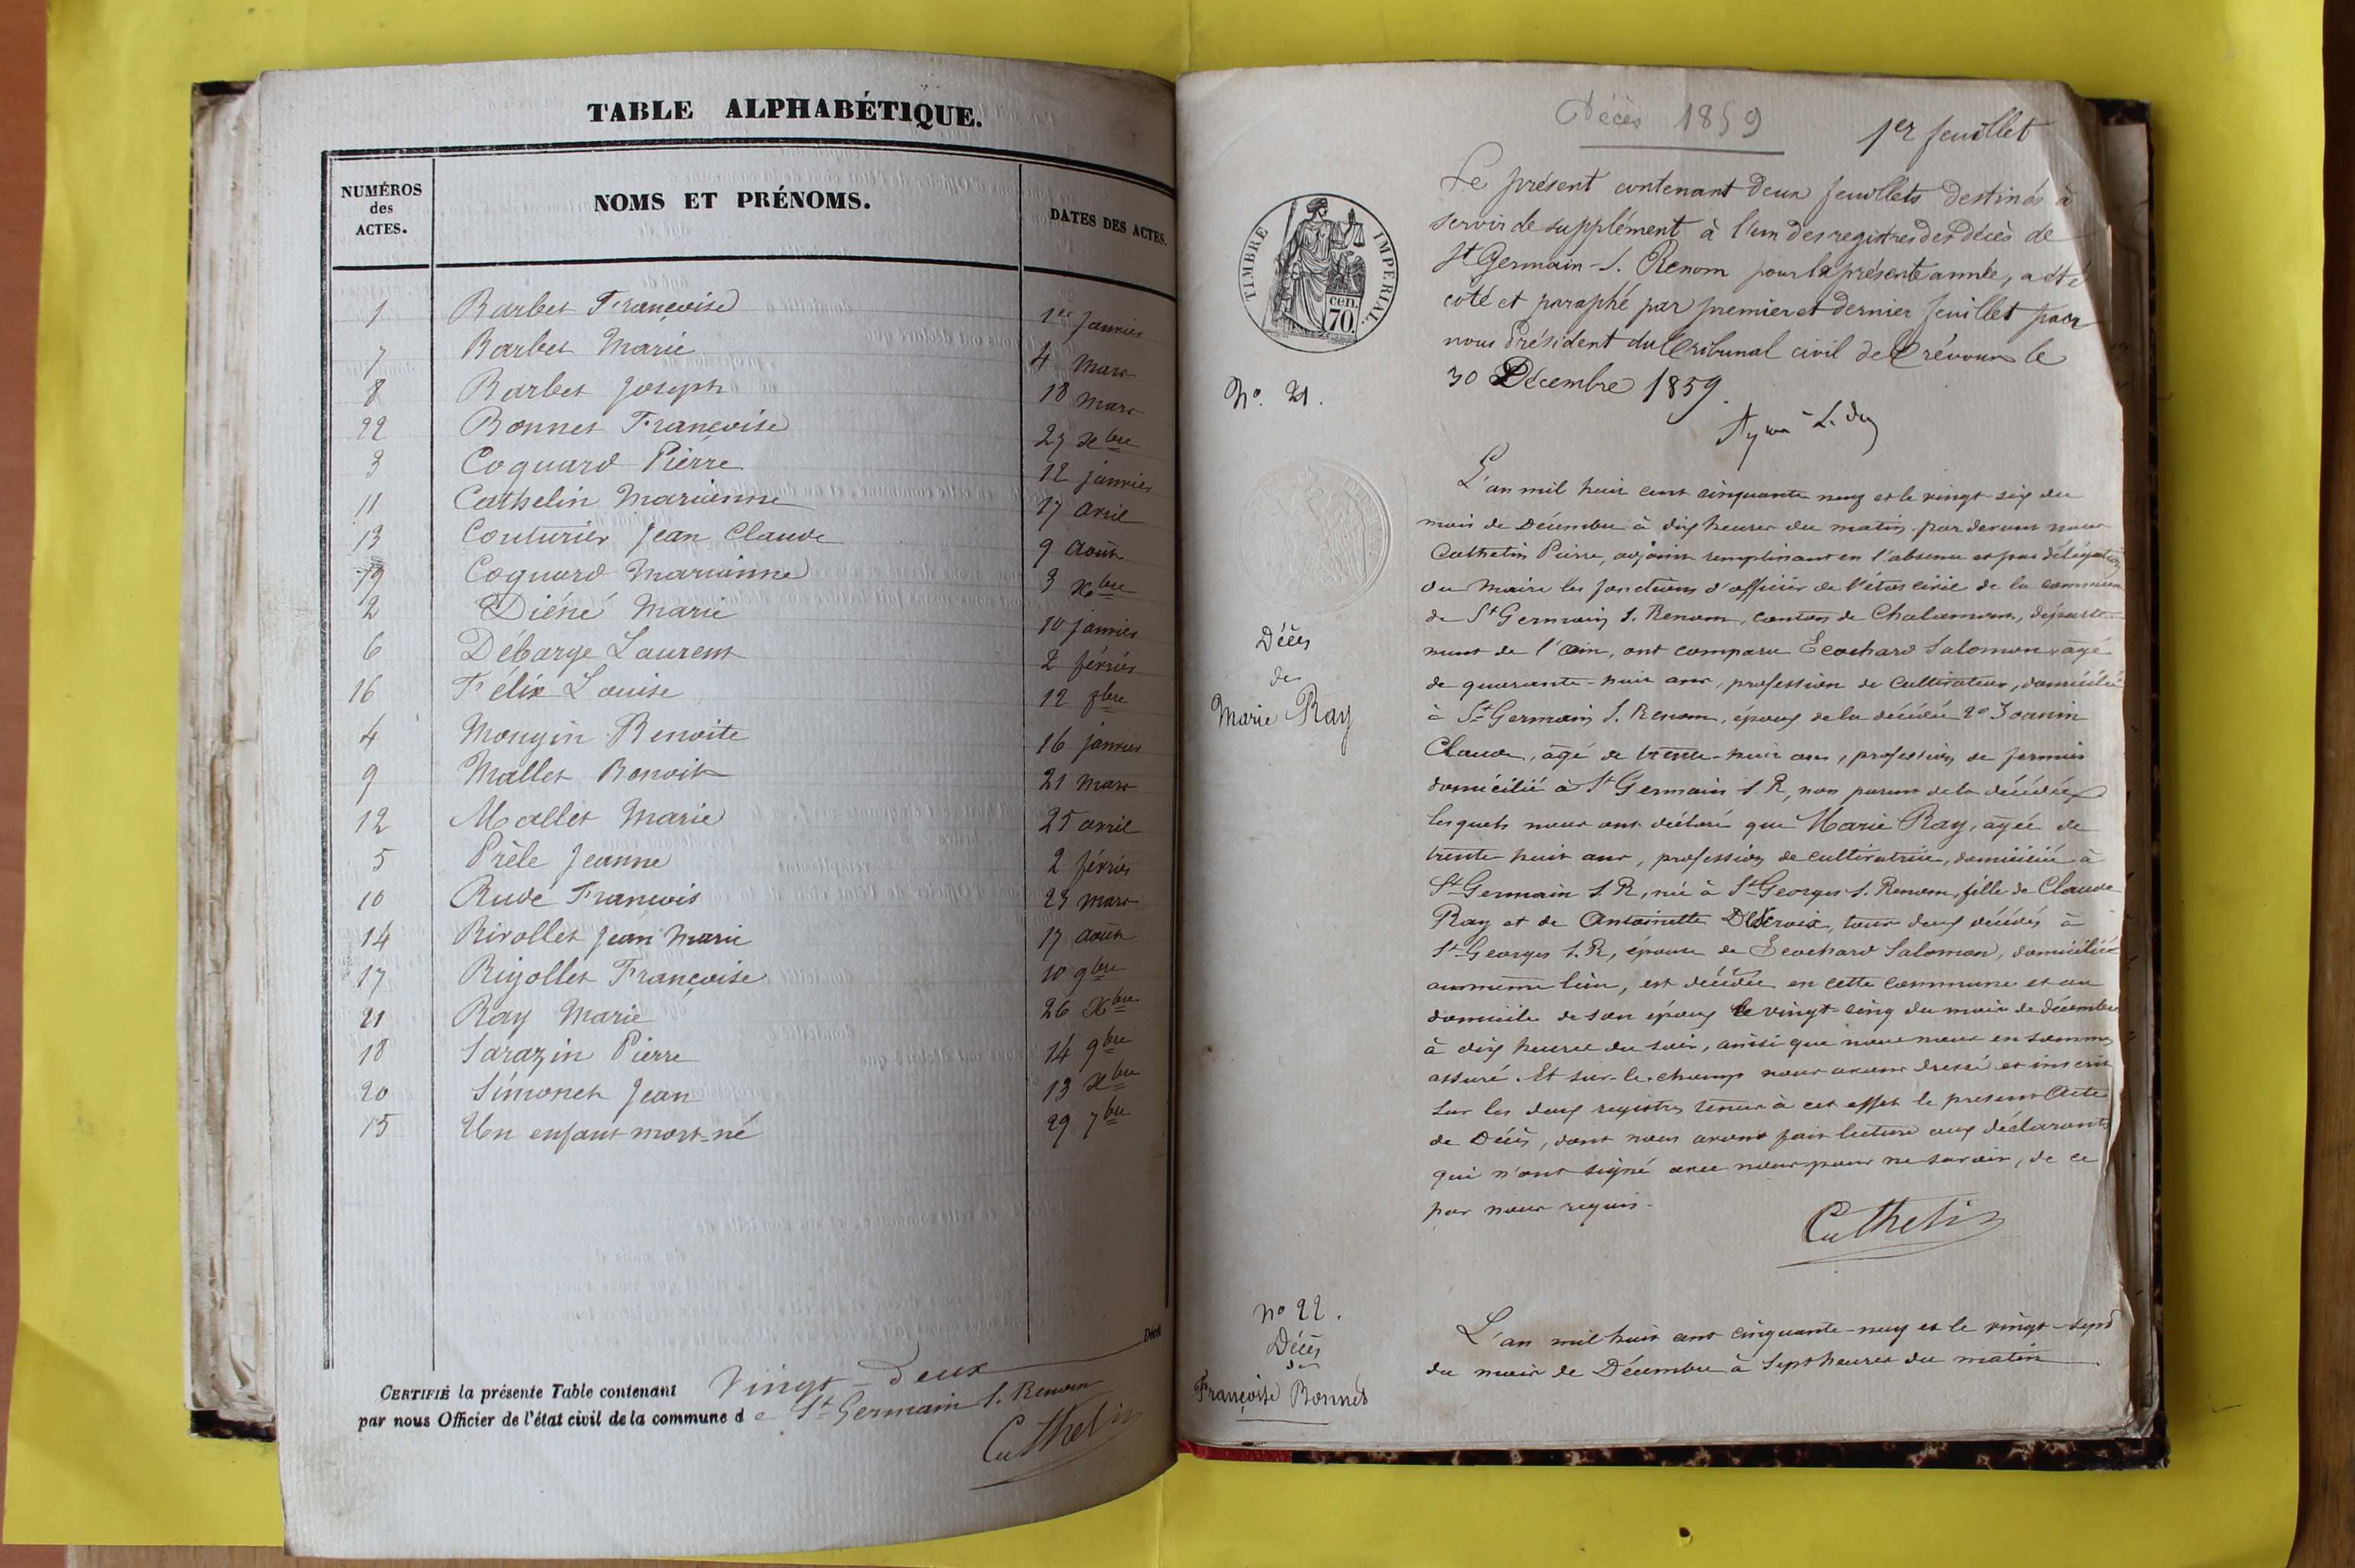 TABLE ALPHABÉTIQUE.
NUMÉROS des ACTES. NOMS ET PRÉNOMS. DATES DES ACTES.
1 Barbet Françoise 1er Janvier
7 Barbet Marie 4 Mars
8 Barbet Joseph 18 mars
22 Bonnet Françoise 27 xbre
3 Coquard Pierre 12 janvier
11 Cathelin Marianne 17 avril
13 Couturier Jean Claude 9 Août
19 Coquard Marianne 3 xbre
2 Diéné Marie 10 janvier
6 Débarge Laurent 2 février
16 Félix Louise 12 8bre
4 Mongin Benoite 16 janvier
9 Mallet Benoit 21 mars
12 Mallet Marie 25 avril
5 Prèle Jeanne 2 février
10 Rude François 23 mars
14 Rivollet Jean Marie 17 août
17 Rigollet Françoise 10 9bre
21 Ray Marie 26 Xbre
18 Sarazin Pierre 14 9bre
20 Simonet Jean 13 xbre
15 Un enfant mort-né 29 7bre
Décès
CERTIFIÉ la présente Table contenant Vingt-Deux
par nous Officier de l'état civil de la commune de St Germain S. Renom
Cathelin
Décès 1859
1er feuillet
Le présent contenant deux feuillets destinés à
servir de supplément à l'un des registres des décès de
St Germain-S. Renom pour la présente année, a été
coté et paraphé par premier et dernier feuillet par
nous Président du Tribunal civil de Trévoux le
30 Décembre 1859.
TIMBRE IMPÉRIAL.
70 cen.
No. 21.
Décès
de
Marie Ray
L'an mil huit cent cinquante neuf et le vingt-six du
mois de Décembre à dix heures du matin par devant nous
Cathelin Pierre, adjoint remplissant en l'absence et par délégation
du Maire les fonctions d'officier de l'état civil de la commune
de St Germain S. Renom, canton de Chalamont, départe-
ment de l'Ain, ont comparu Ecochard Salomon, âgé
de quarante-huit ans, profession de cultivateur, domicilié
à St Germain S. Renom, époux de la décédée 2o Joanin
Claude, âgé de trente-huit ans, profession de fermier
domicilié à St Germain S R, non parent de la décédée
lesquels nous ont déclaré que Marie Ray, âgée de
trente huit ans, profession de cultivatrice, domiciliée à
St Germain S. R, née à St Georges S. Renom, fille de Claude
Ray et de Antoinette Decroix, tous deux décédés à
St Georges S. R, épouse de Ecochard Salomon, domicilié
au même lieu, est décédée en cette commune et au
domicile de son époux le vingt-cinq du mois de décembre
à dix heures du soir, ainsi que nous nous en sommes
assuré. Et sur-le-champ nous avons dressé et inscrit
sur les deux registres tenus à cet effet le présent Acte
de Décès, dont nous avons fait lecture aux déclarants
qui n'ont signé avec nous pour ne savoir, de ce
par nous requis.
Cathelin
No 22.
Décès
de
Françoise Bonnet
L'an mil huit cent cinquante-neuf et le vingt-sept
du mois de Décembre à sept heures du matin